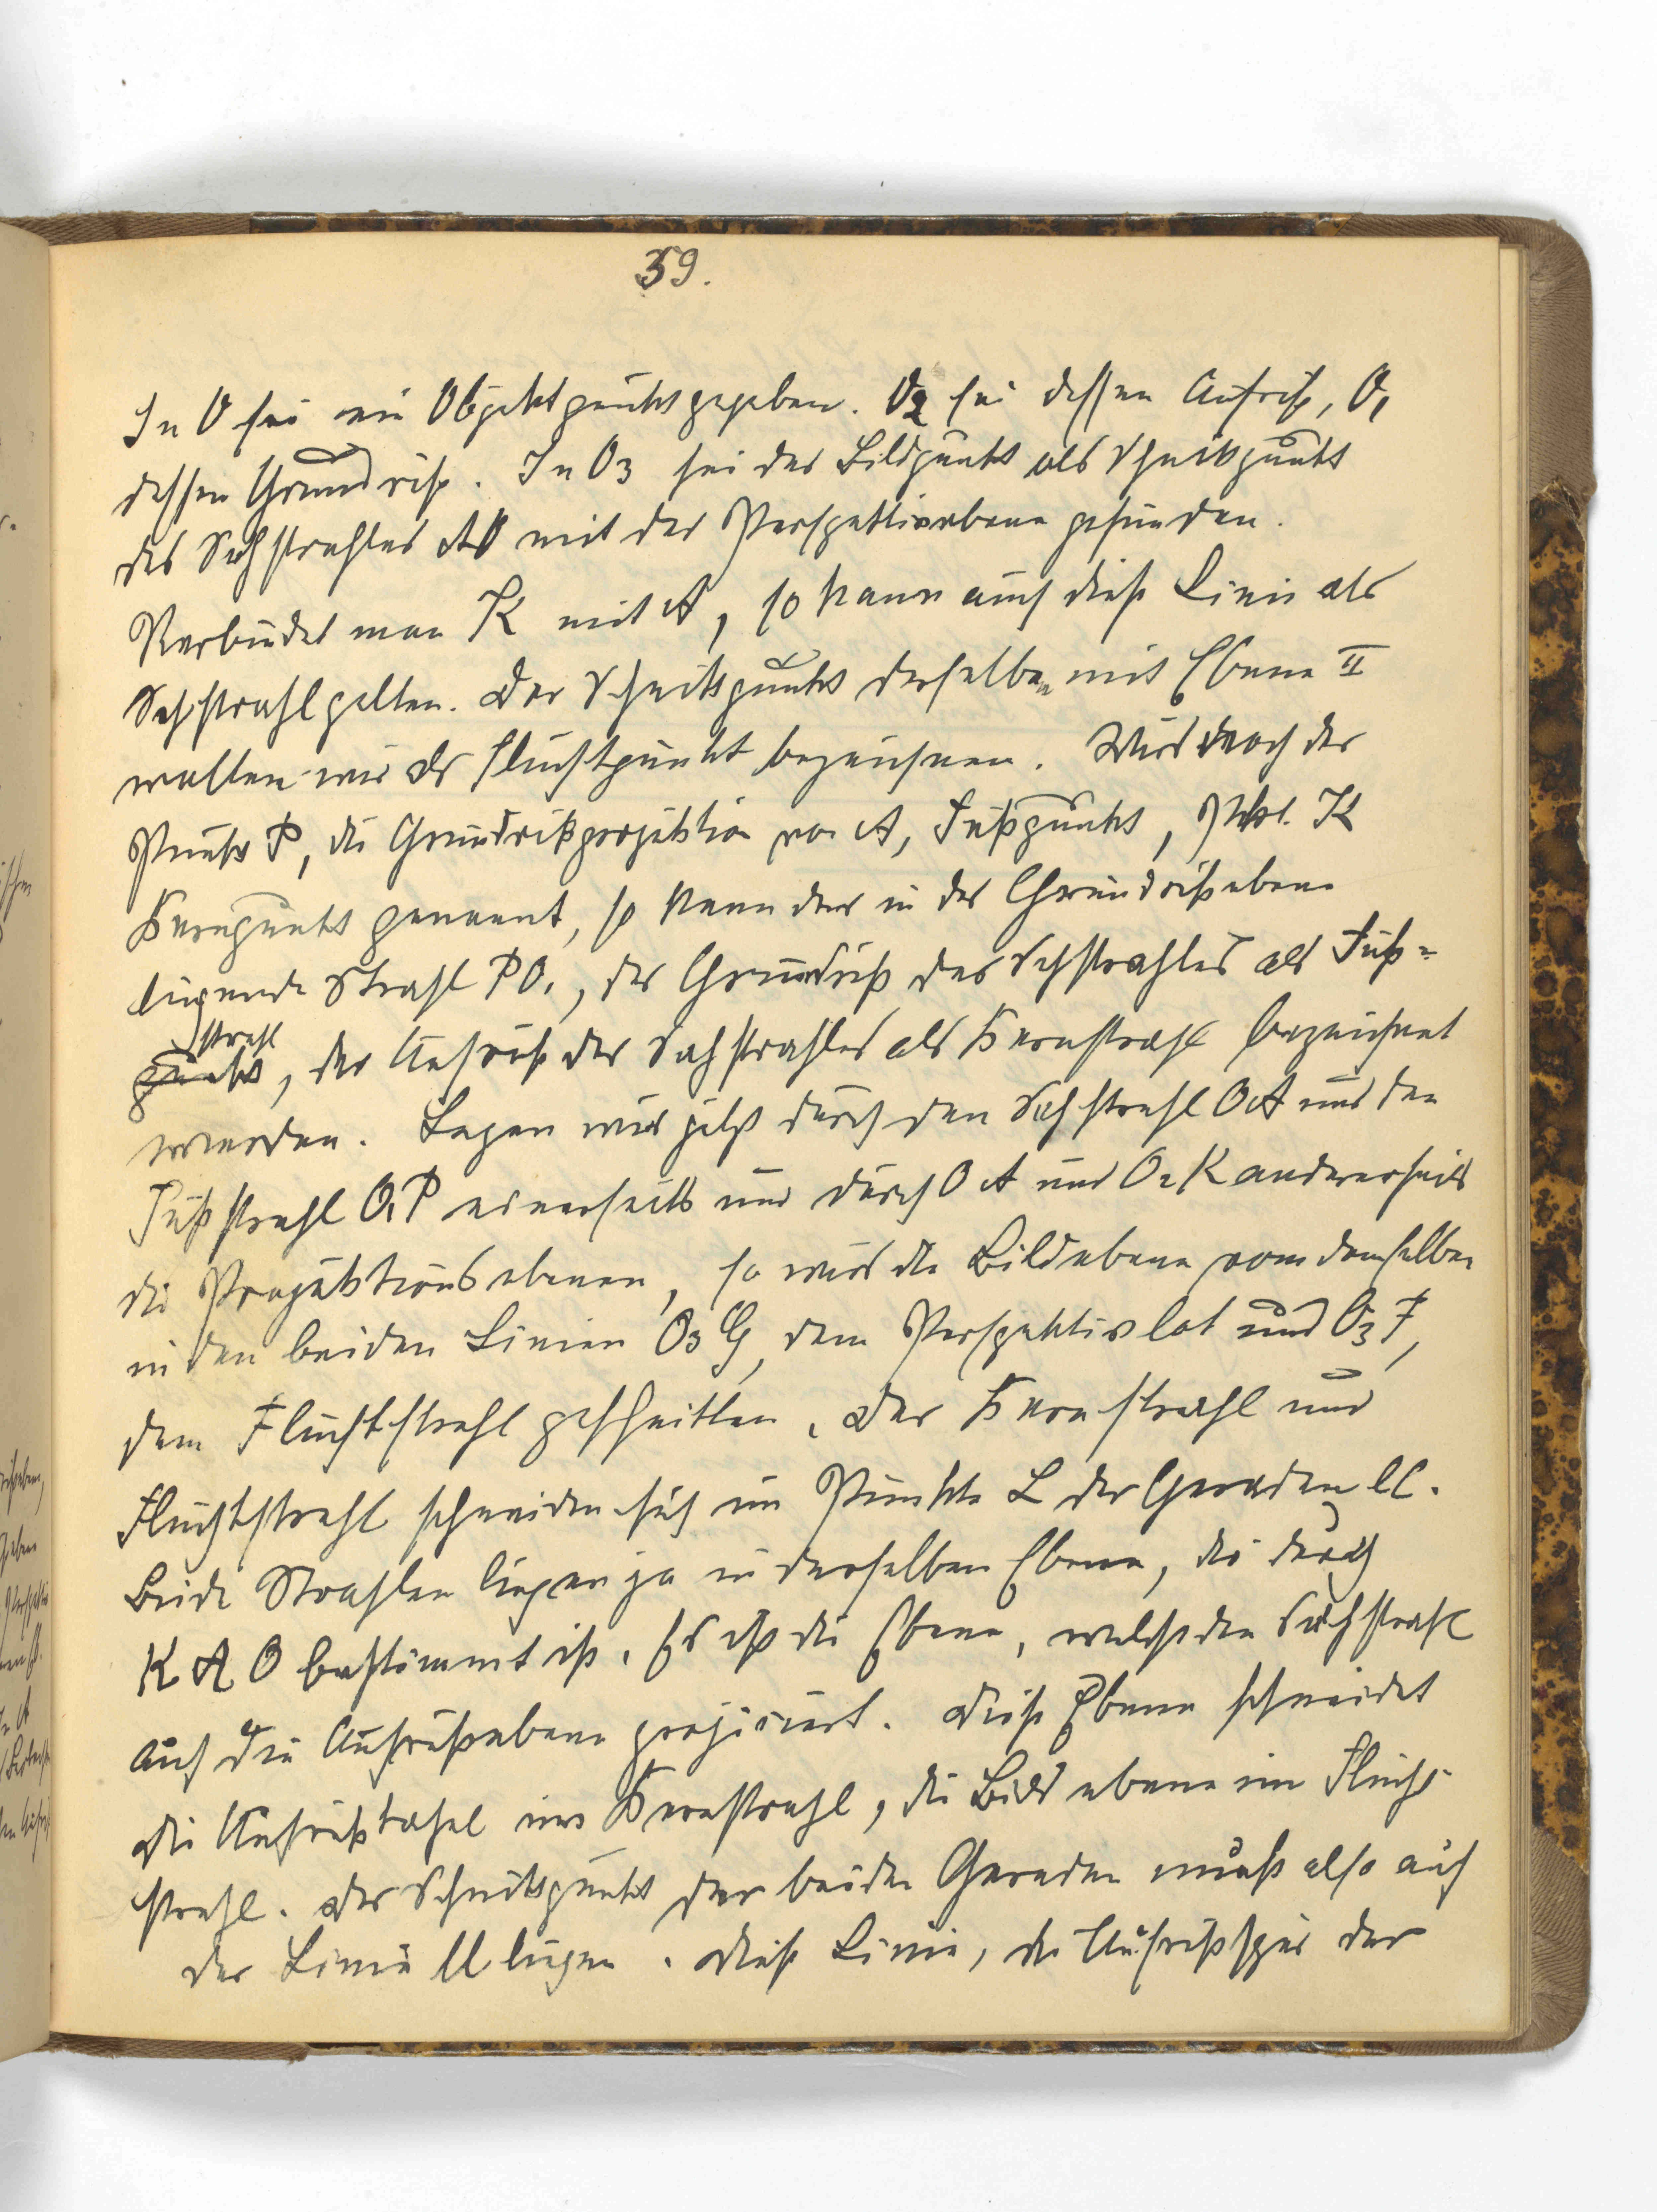 39.
In O sei ein Objektpunkt gegeben. O2 sei dessen Aufriß, O1
dessen Grundriß. In O3 sei der Bildpunkt als Schnittpunkt
des Sehstrahles AO mit der Perspektivebene gefunden.
Verbindet man K mit A, so kann auch diese Linie als
Sehstrahl gelten. Der Schnittpunkt desselben mit Ebene II
wollen wir als Fluchtpunkt bezeichnen. Wird noch der
Punkt P, die Grundrißprojektion von A, Fußpunkt, K
Kernpunkt genannt, so kann der in der Grundrißebene
liegende Strahl PO1, der Grundriß des Sehstrahles als Fuß=
punkt strahl, der Aufriß des Sehstrahles als Kernstrahl bezeichnet
werden. Legen wir jetzt durch den Sehstrahl OA und den
Fußstrahl O1P einerseits und durch OA und O2K andererseits
die Projektionsebenen, so wird die Bildebene von denselben
in den beiden Linien O3G, dem Perspektivlot und O3F,
dem Fluchtstrahl geschnitten. Der Kernstrahl und
Fluchtstrahl schneiden sich im Punkte L der Geraden ll.
Beide Strahlen liegen ja in derselben Ebene, die durch
K A O bestimmt ist. Es ist die Ebene, welche den Sehstrahl
auf die Aufrißebene projiciert. Diese Ebene schneidet
die Aufrißtafel im Kernstrahl, die Bildebene im Flucht
strahl. Der Schnittpunkt der beiden Geraden muß also auf
der Linie ll liegen. Diese Linie, die Aufrißspur der